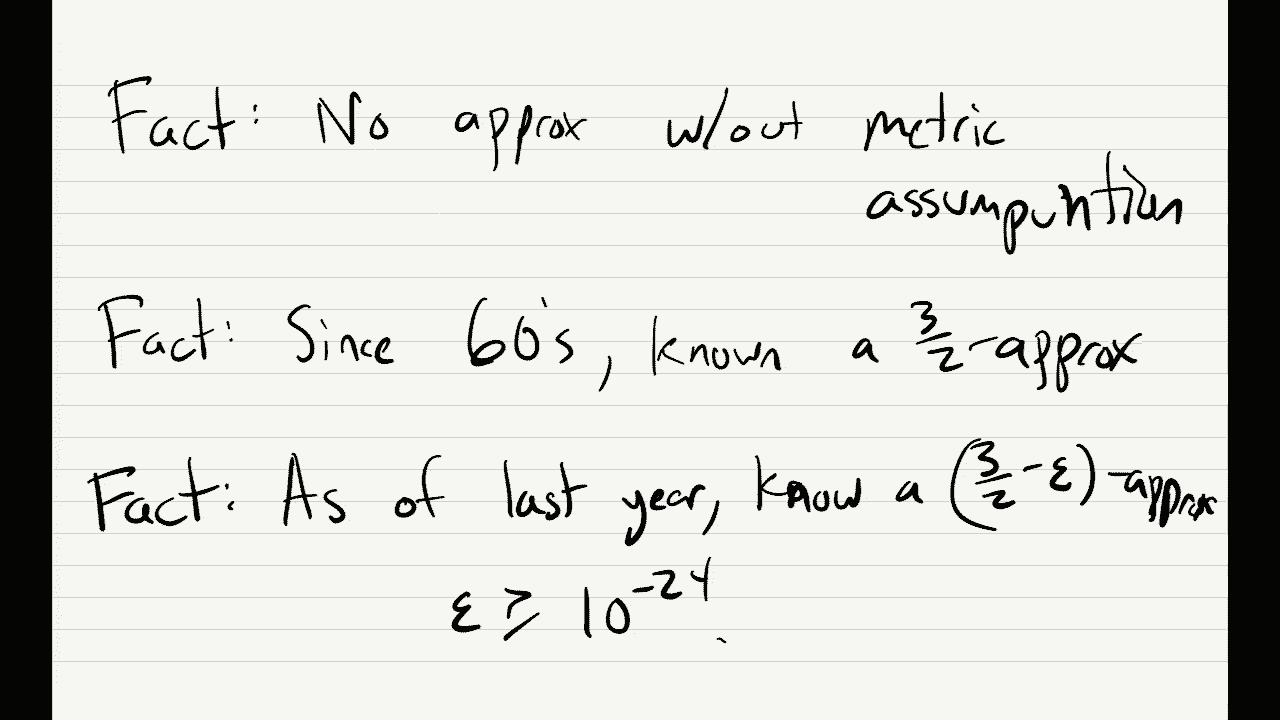 Fact: No approx w/out metric
assumpuntion
Fact: Since 60's, known a 3/2-approx
Fact: As of last year, know a (3/2-ε)-approx
ε ≥ 10^-24.